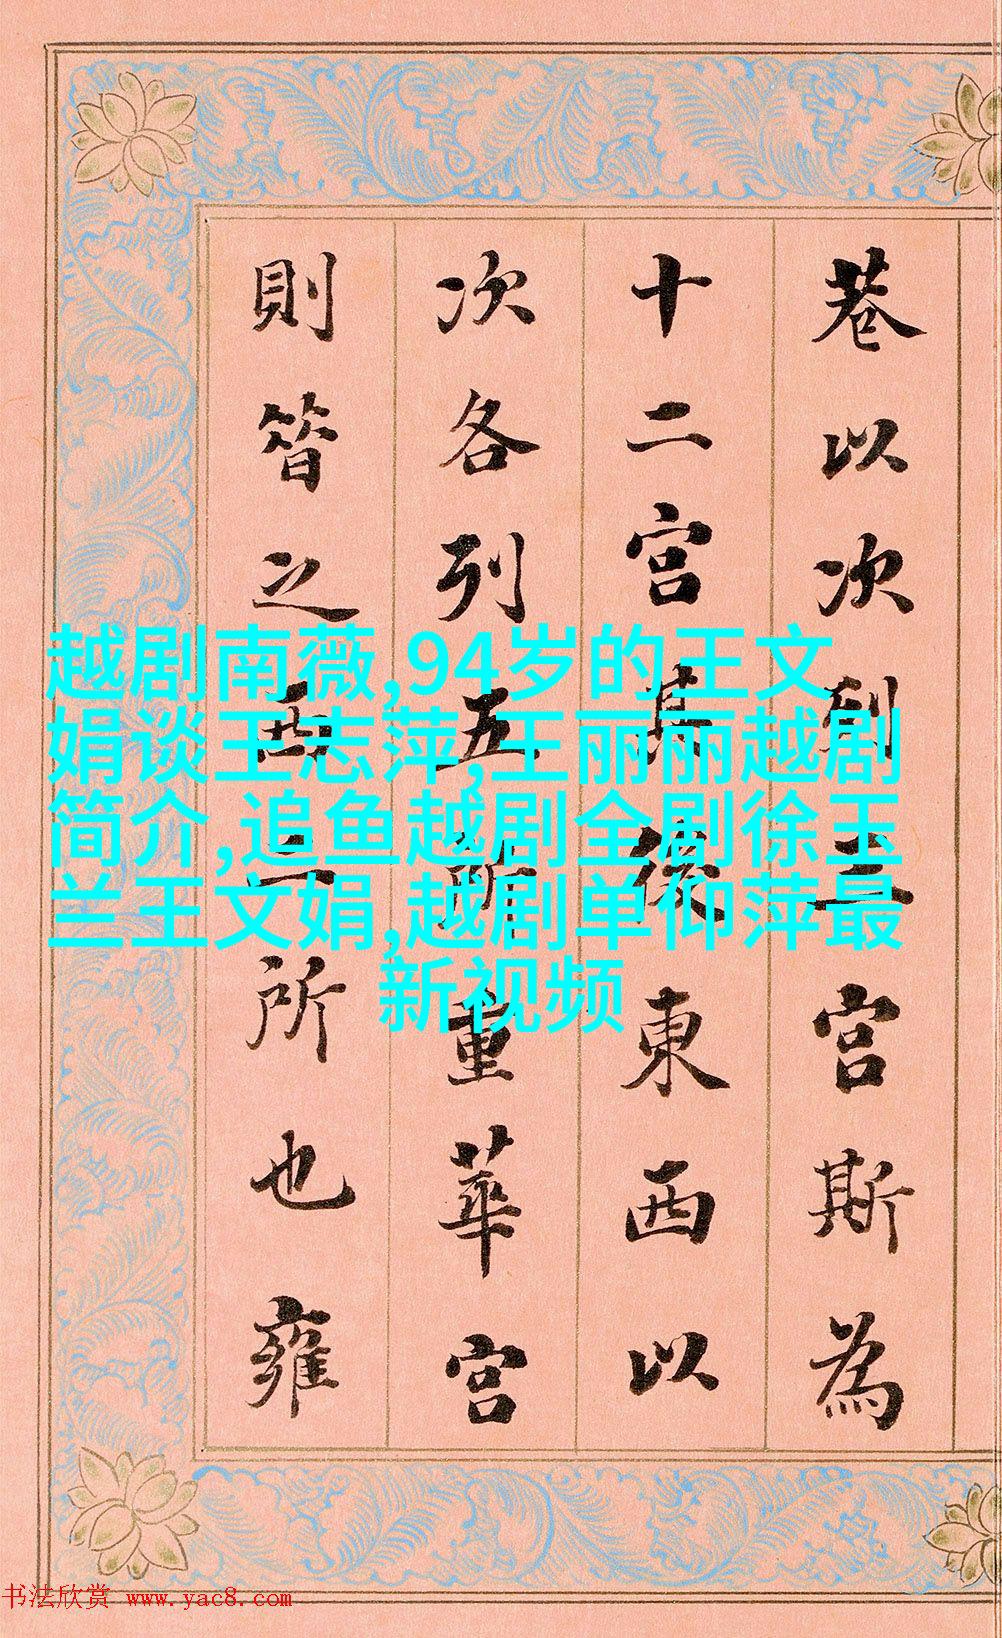 巷以次列三宮斯為
十二宮其後東西以
次各列五所重華宮
則昔之西二所也雍
越剧南薇,94岁的王文
娟谈王志萍,王丽丽越剧
简介,追鱼越剧全剧徐玉
兰王文娟,越剧单仰萍最
新视频
书法欣赏 www.yac8.com